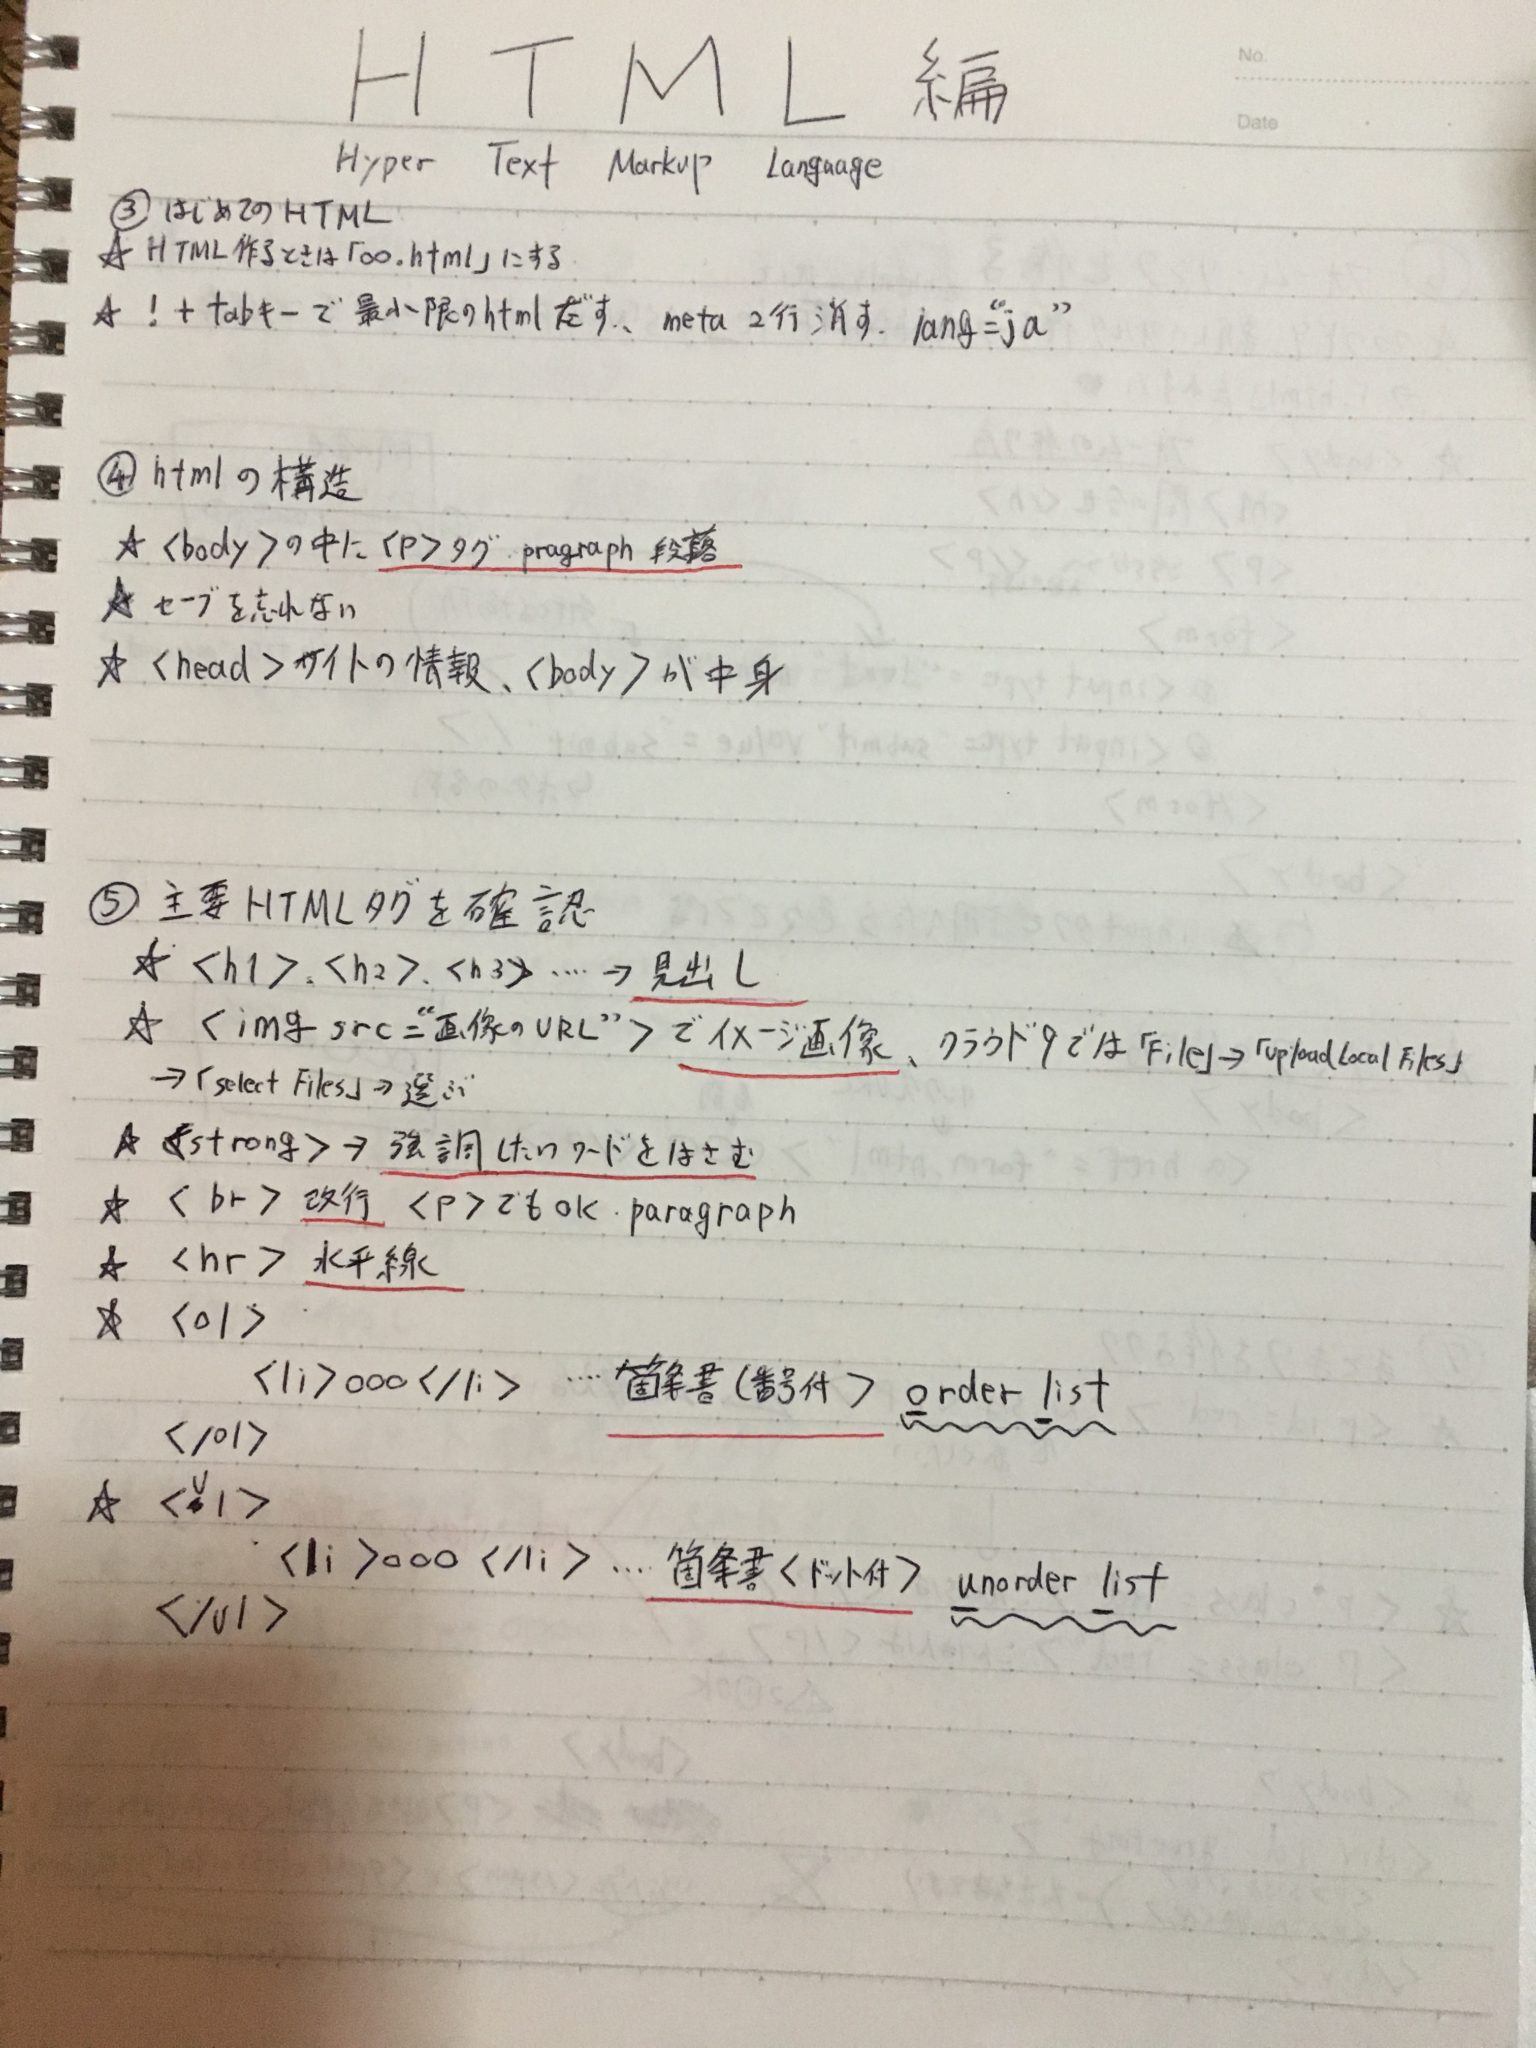 HTML編
No.
Date
Hyper Text Markup Language
③ はじめてのHTML
☆ HTML作るときは「○○.html」にする
☆ !+tabキーで最小限のhtmlだす、meta 2行消す. lang="ja"
④ htmlの構造
☆ <body>の中に<P>タグ.pragraph 段落
☆ セーブを忘れない
☆ <head>サイトの情報、<body>が中身
⑤ 主要HTMLタグを確認
☆ <h1>、<h2>、<h3>…→見出し
☆ <img src="画像のURL">でイメージ画像、クラウド9では「File」→「upload Local Files」
→「select Files」→選ぶ
☆ <strong>→強調したいワードをはさむ
☆ <br> 改行 <P>でもok.paragraph
☆ <hr> 水平線
☆ <ol>
<li>○○○</li> …箇条書(番号付> order list
</ol>
☆ <ul>
<li>○○○</li> …箇条書<ドット付> unorder list
</ul>